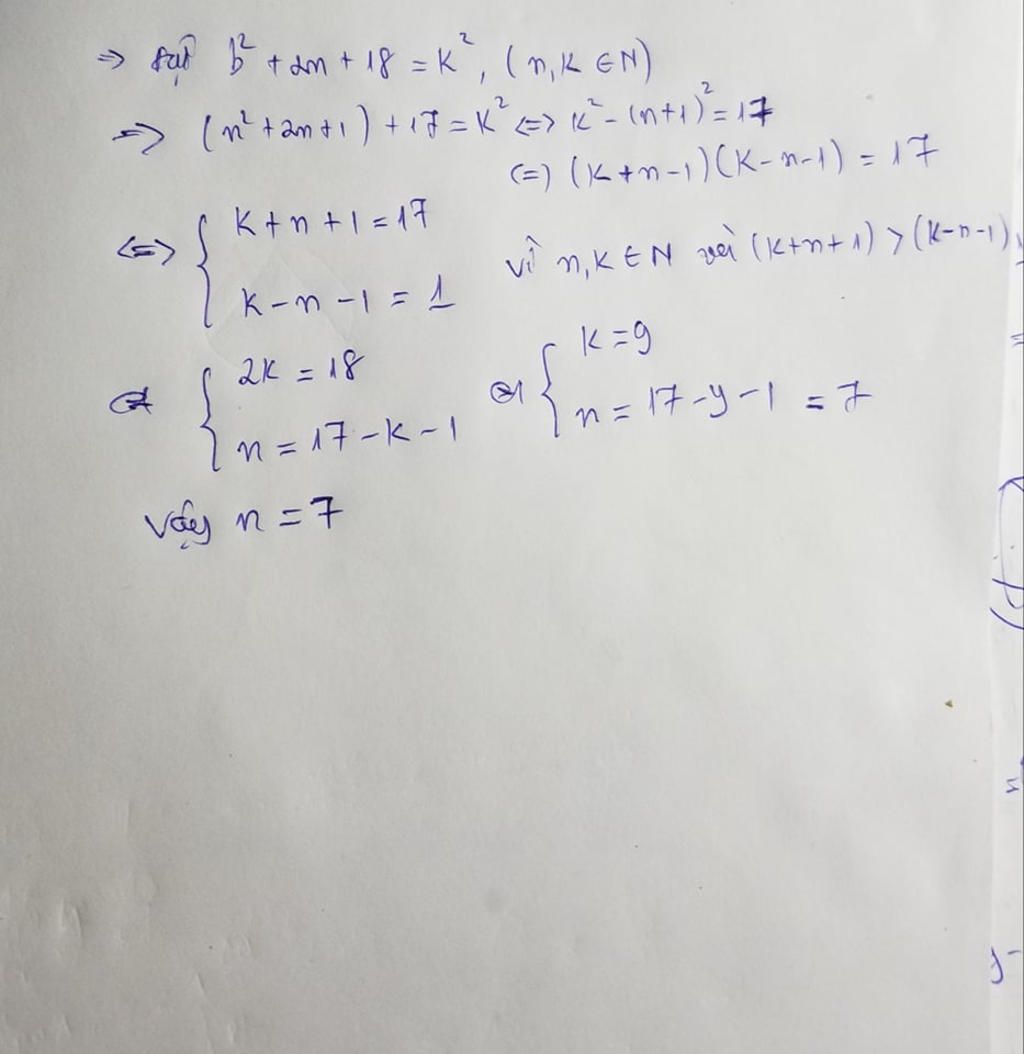 ⇒ đặt b² + 2n + 18 = k², (n, k ∈ N)
⇒ (n² + 2n + 1) + 17 = k² ⇔ k² - (n+1)² = 17
⇔ (k + n - 1)(k - n - 1) = 17
⇔ { k + n + 1 = 17
k - n - 1 = 1
vì n, k ∈ N với (k + n + 1) > (k - n - 1)
⇔ { 2k = 18
n = 17 - k - 1
⇔ { k = 9
n = 17 - y - 1 = 7
Vậy n = 7